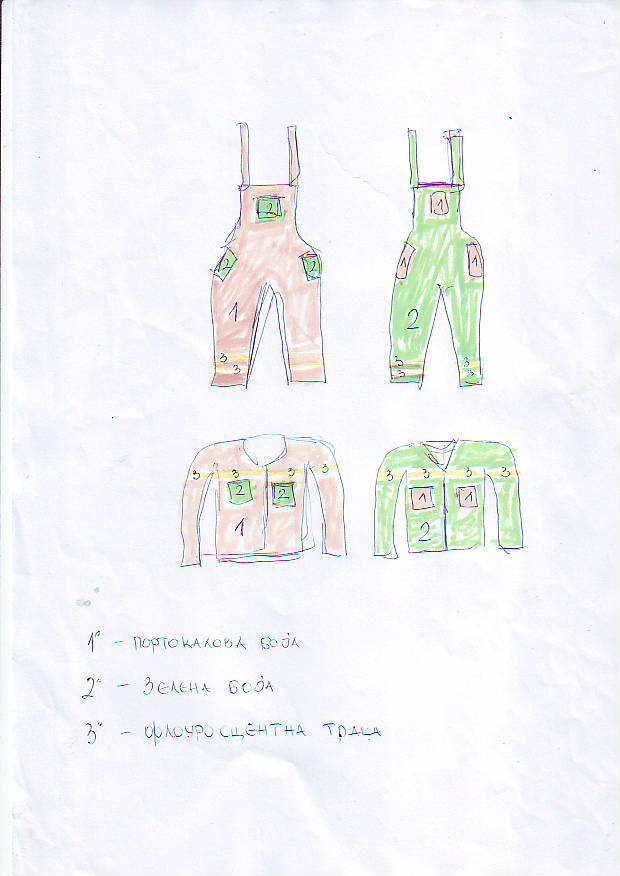 2
2 2
1
3
3
1
1 1
2
3 3
3 3
3 3 3 3
2 2
1
3 3 3 3
1 1
2
1" - ПОРТОКАЛОВА БОЈА
2" - ЗЕЛЕНА БОЈА
3" - ФЛОУРОСЦЕНТНА ТРАКА